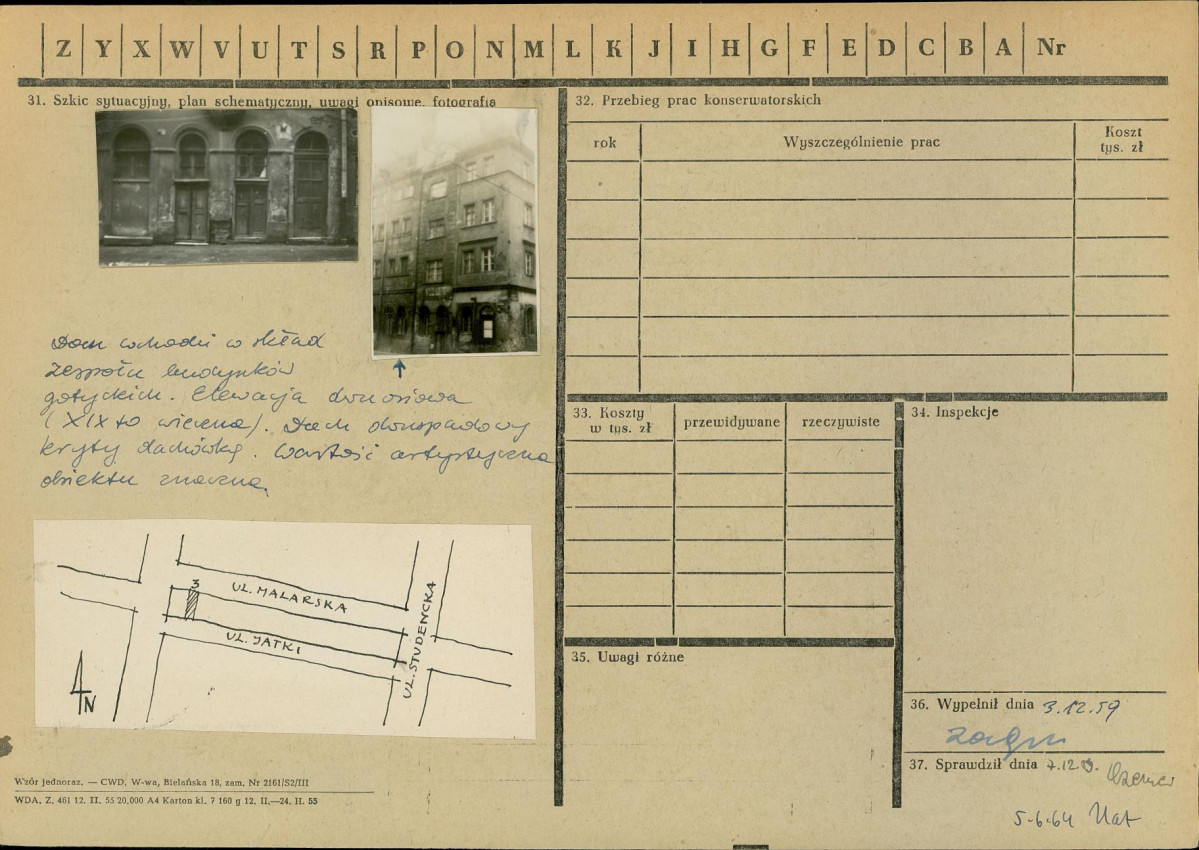 Z Y X W V U T S R P O N M L K J I H G F E D C B A Nr
31. Szkic sytuacyjny, plan schematyczny, uwagi opisowe, fotografia
Dom wchodzi w skład
zespołu budynków
gotyckich. Elewacja dwuosiowa
(XIX-to wieczna). Dach dwuspadowy
kryty dachówką. Wartość artystyczna
obiektu znaczna.
3
UL. MALARSKA
UL. JATKI
UL. STUDENCKA
N
Wzór jednoraz. — CWD, W-wa, Bielańska 18, zam. Nr 2161/S2/III
WDA. Z. 461 12. II. 55 20.000 A4 Karton kl. 7 160 g 12. II.—24. II. 55
32. Przebieg prac konserwatorskich
rok
Wyszczególnienie prac
Koszt
tys. zł
33. Koszty
w tys. zł
przewidywane
rzeczywiste
34. Inspekcje
35. Uwagi różne
36. Wypełnił dnia 3.12.59
37. Sprawdził dnia 7.12
5-6-64